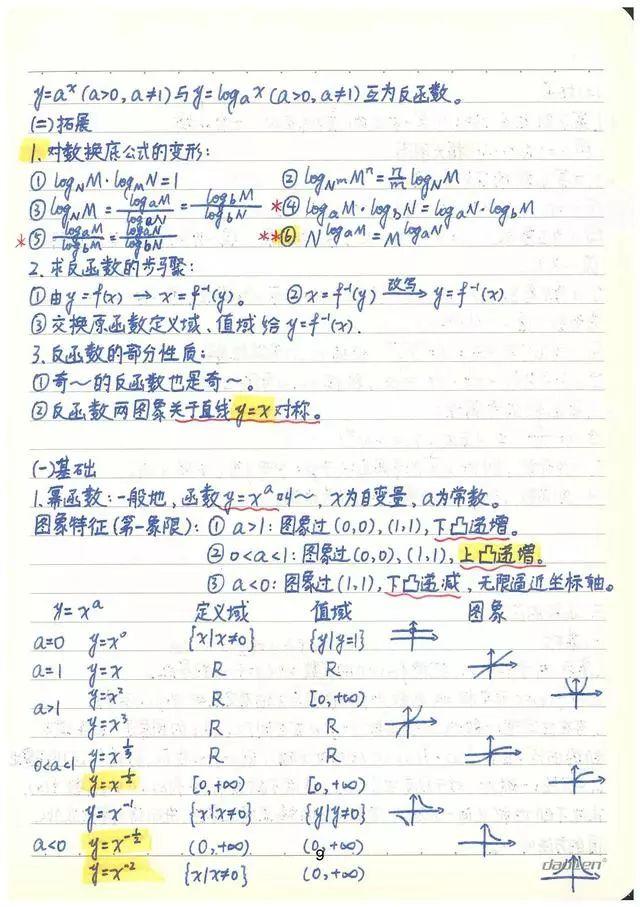 y=aˣ (a>0, a≠1) 与 y=logₐx (a>0, a≠1) 互为反函数。
(二) 拓展
1. 对数换底公式的变形：
① log_N M · log_M N = 1 ② log_{N^m} M^n = n/m log_N M
③ log_N M = log_a M / log_a N = log_b M / log_b N *④ log_a M · log_b N = log_a N · log_b M
*⑤ log_a M / log_b M = log_a N / log_b N **⑥ N^{log_a M} = M^{log_a N}
2. 求反函数的步骤：
① 由 y=f(x) → x=f⁻¹(y)。 ② x=f⁻¹(y) 改写→ y=f⁻¹(x)
③ 交换原函数定义域、值域给 y=f⁻¹(x).
3. 反函数的部分性质：
① 奇~的反函数也是奇~。
② 反函数两图象关于直线 y=x 对称。
(一) 基础
1. 幂函数：一般地，函数 y=xᵃ 叫~，x为自变量，a为常数。
图象特征(第一象限)：① a>1：图象过(0,0),(1,1),下凸递增。
② 0<a<1：图象过(0,0),(1,1),上凸递增。
③ a<0：图象过(1,1),下凸递减，无限逼近坐标轴。
y=xᵃ 定义域 值域 图象
a=0 y=x⁰ {x|x≠0} {y|y=1}
a=1 y=x R R
a>1 y=x² R [0,+∞)
y=x³ R R
0<a<1 y=x^{1/3} R R
y=x^{1/2} [0,+∞) [0,+∞)
y=x⁻¹ {x|x≠0} {y|y≠0}
a<0 y=x^{-1/2} (0,+∞) (0,+∞)
y=x⁻² {x|x≠0} (0,+∞)
9